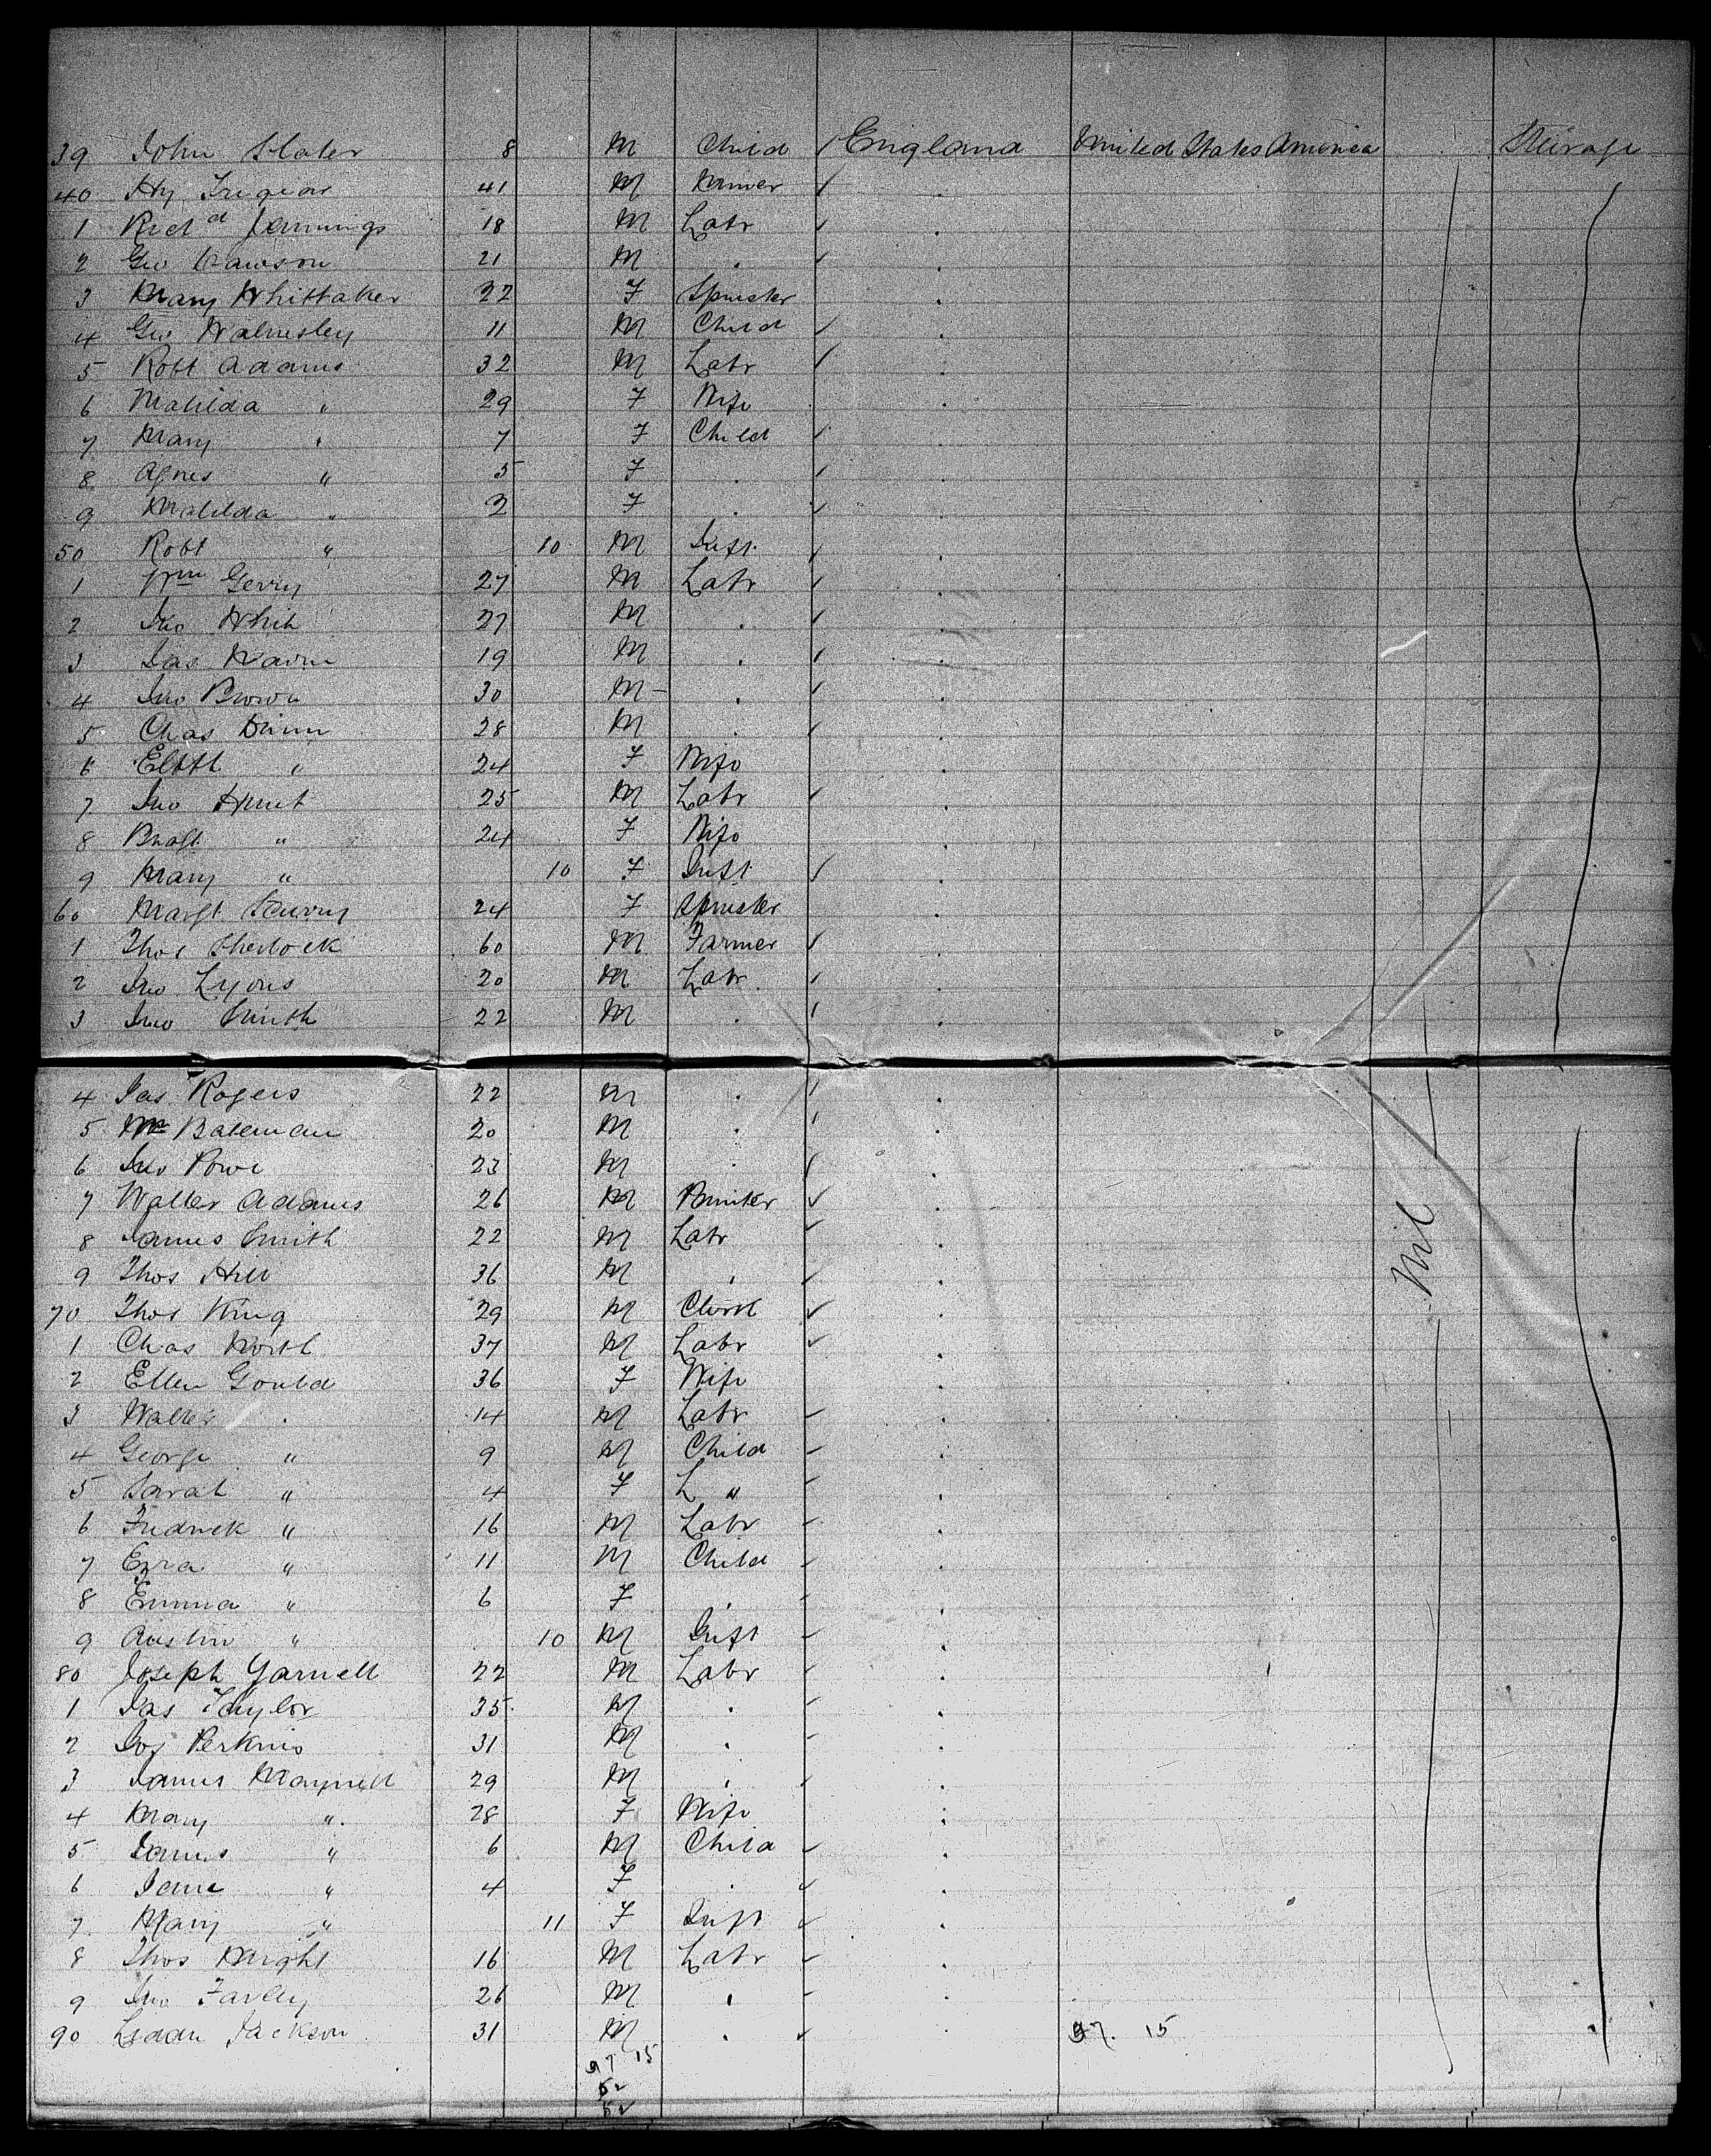 39 John Slater 8 M Child England United States America Steerage
40 Hy Tregear 41 M
1 Richd Jennings 18 M Labr
2 Geo Dawson 21 M .
3 Mary Whittaker 22 F Spinster
4 Geo Walmsley 11 M Child
5 Robt Adams 32 M Labr
6 Matilda " 29 F Wife
7 Mary " 7 F Child
8 Agnes " 5 F .
9 Matilda " 2 F .
50 Robt " 10 M Inft
1 Wm Gerry 27 M Labr
2 Jno White 27 M .
3 Jas 19 M .
4 Jno Brown 30 M .
5 Chas Dunn 28 M .
6 Elbth " 24 F Wife
7 Jno Hunt 25 M Labr
8 " 24 F Wife
9 Mary " 10 F Inft
60 Margt 24 F Spinster
1 Thos Sherlock 60 M Farmer
2 Jno Lyons 20 M Labr
3 Jno Smith 22 M .
4 Jas Rogers 22 M .
5 Wm Bateman 20 M .
6 Jno Powe 23 M .
7 Walter Adams 26 M
8 James Smith 22 M Labr
9 Thos Hill 36 M .
70 Thos King 29 M Clerk Nil
1 Chas North 37 M Labr
2 Ellen Gould 36 F Wife
3 Walter . 14 M Labr
4 George " 9 M Child
5 Sarah " 4 F L "
6 Fredrick " 16 M Labr
7 Ezra " 11 M Child
8 Emma " 6 F .
9 Austin " 10 M Inft
80 Joseph Yarnell 22 M Labr
1 Jas Taylor 35 M .
2 Jos Perkins 31 M .
3 James Maynell 29 M .
4 Mary " 28 F Wife
5 James " 6 M Child
6 Jane " 4 F .
7 Mary " 11 F Inft
8 Thos Knight 16 M Labr
9 Jno Farley 26 M .
90 Jackson 31 M . 97. 15
97 15
52
52